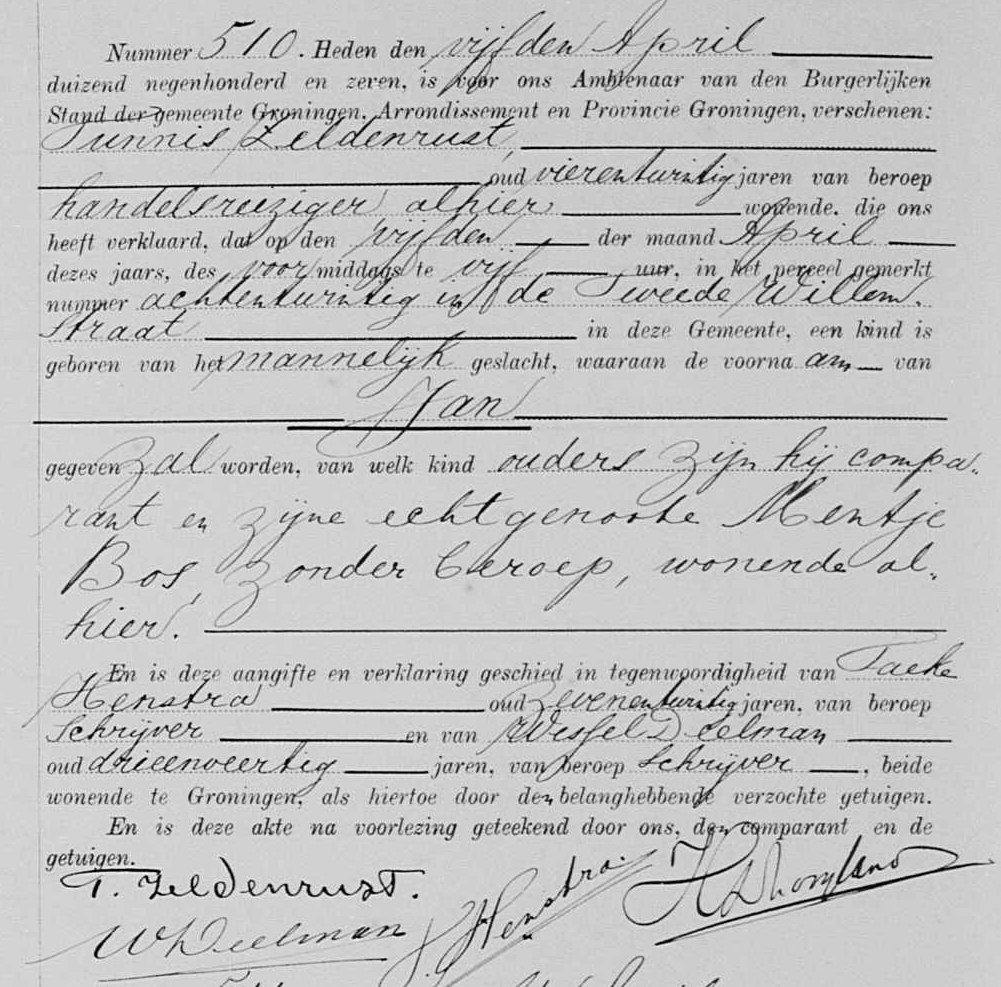 Nummer 510. Heden den vijfden April
duizend negenhonderd en zeven, is voor ons Ambtenaar van den Burgerlijken
Stand der gemeente Groningen, Arrondissement en Provincie Groningen, verschenen:
Tunnis Zeldenrust,
oud vierentwintig jaren van beroep
handelsreiziger alhier wonende, die ons
heeft verklaard, dat op den vijfden der maand April
dezes jaars, des voormiddags te vijf uur, in het perceel gemerkt
nummer achtentwintig in de Tweede Willem-
straat in deze Gemeente, een kind is
geboren van het mannelijk geslacht, waaraan de voornaam van
Jan
gegeven zal worden, van welk kind ouders zijn hij compa-
rant en zijne echtgenoote Mentje
Bos, zonder beroep, wonende al-
hier.
En is deze aangifte en verklaring geschied in tegenwoordigheid van Taeke
Henstra oud zevenentwintig jaren, van beroep
Schrijver en van Wessel Deelman
oud drieenveertig jaren, van beroep Schrijver, beide
wonende te Groningen, als hiertoe door den belanghebbende verzochte getuigen.
En is deze akte na voorlezing geteekend door ons, den comparant en de
getuigen.
T. Zeldenrust.
WDeelman Henstra.